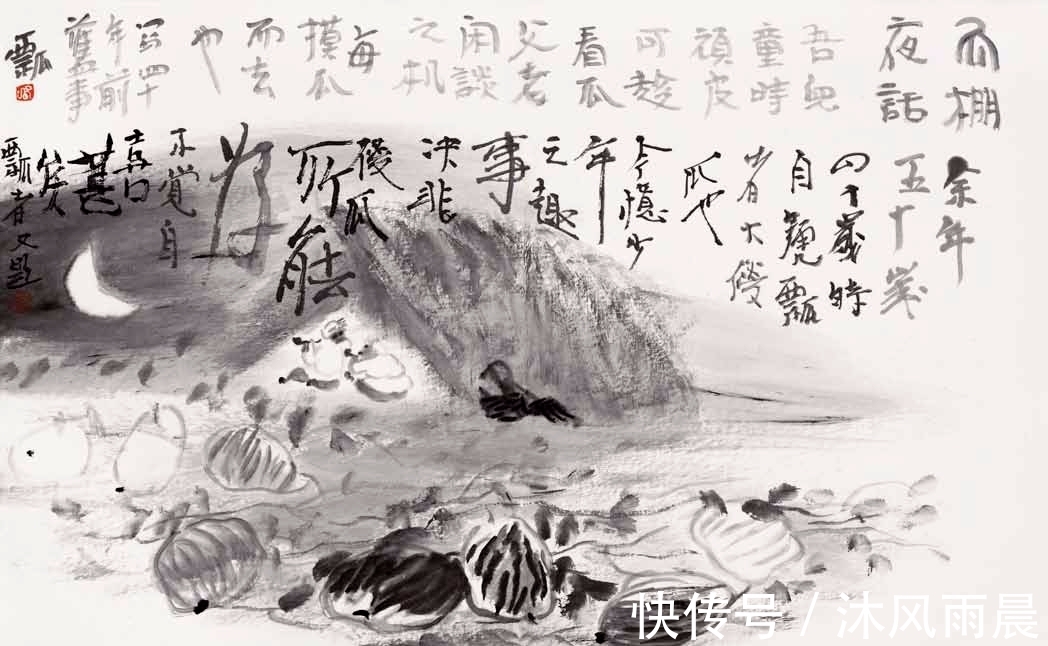 瓜棚
夜話
吾兒
童時
頑皮
可趁
看瓜
父老
闲談
之机
每
摸瓜
而去
也
写四十
年前
舊事
瓢
余年
五十歲
四十歲時
自號瓢
少有大傻
瓜也
今憶少
年
之趣
事
决非
傻瓜
所能
为
不覺自
喜
甚
笑
瓢者又題
快传号 / 沐风雨晨